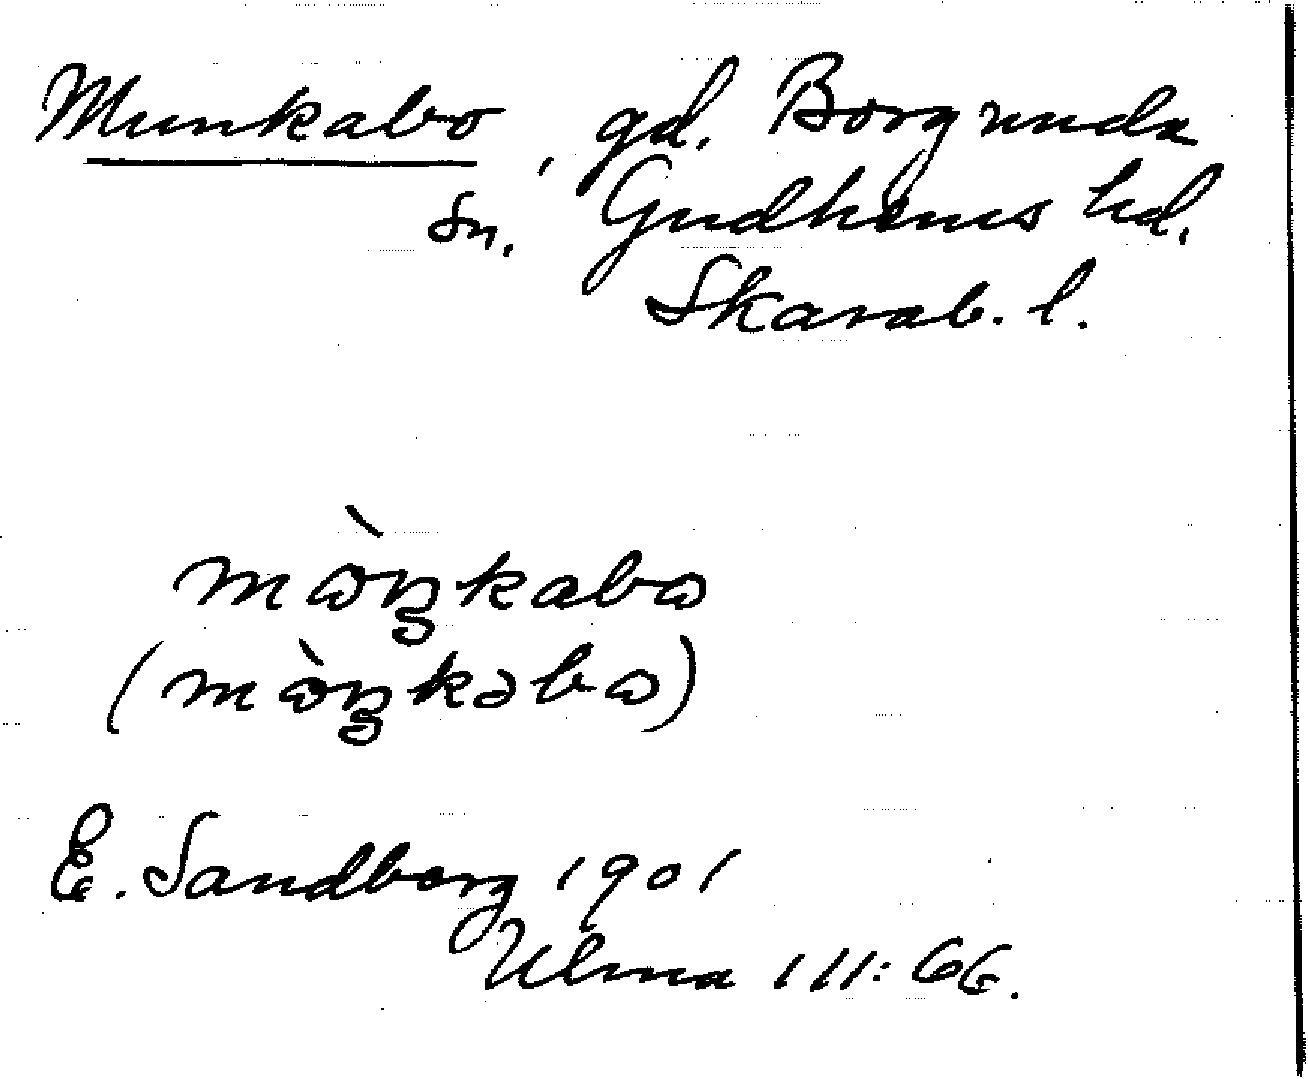 Munkabo, gd. Borgunda
sn. Gudhems hd.
Skarab. l.
mòŋkabo
(mòŋkəbo)
E. Sandberg 1901
Ulma 111:66.